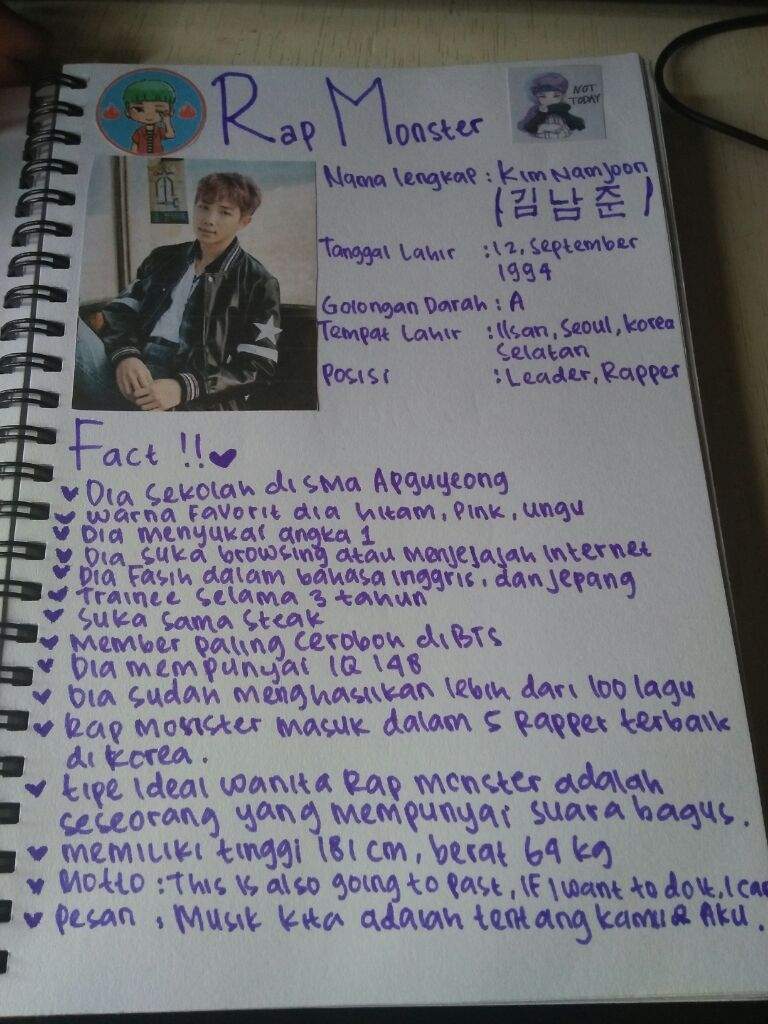 Rap Monster
NOT
TODAY
Nama lengkap : Kim Namjoon
(김남준)
Tanggal Lahir : 12, September
1994
Golongan Darah : A
Tempat Lahir : Ilsan, Seoul, Korea
Selatan
Posisi : Leader, Rapper
Fact !!
Dia sekolah di SMA Apguyeong
Warna Favorit dia hitam, Pink, ungu
Dia menyukai angka 1
Dia suka browsing atau menjejajah Internet
Dia Fasih dalam bahasa inggris, dan Jepang
Trainee selama 3 tahun
Suka sama steak
Member paling ceroboh di BTS
Dia mempunyai IQ 148
Dia sudah menghasilkan lebih dari 100 lagu
Rap Monster masuk dalam 5 Rapper terbaik
di Korea.
tipe ideal wanita Rap monster adalah
seseorang yang mempunyai suara bagus.
memiliki tinggi 181 cm, berat 64 kg
Motto : This is also going to past, IF I want to do it, I can
Pesan , Musik kita adalah tentang kamu & Aku.